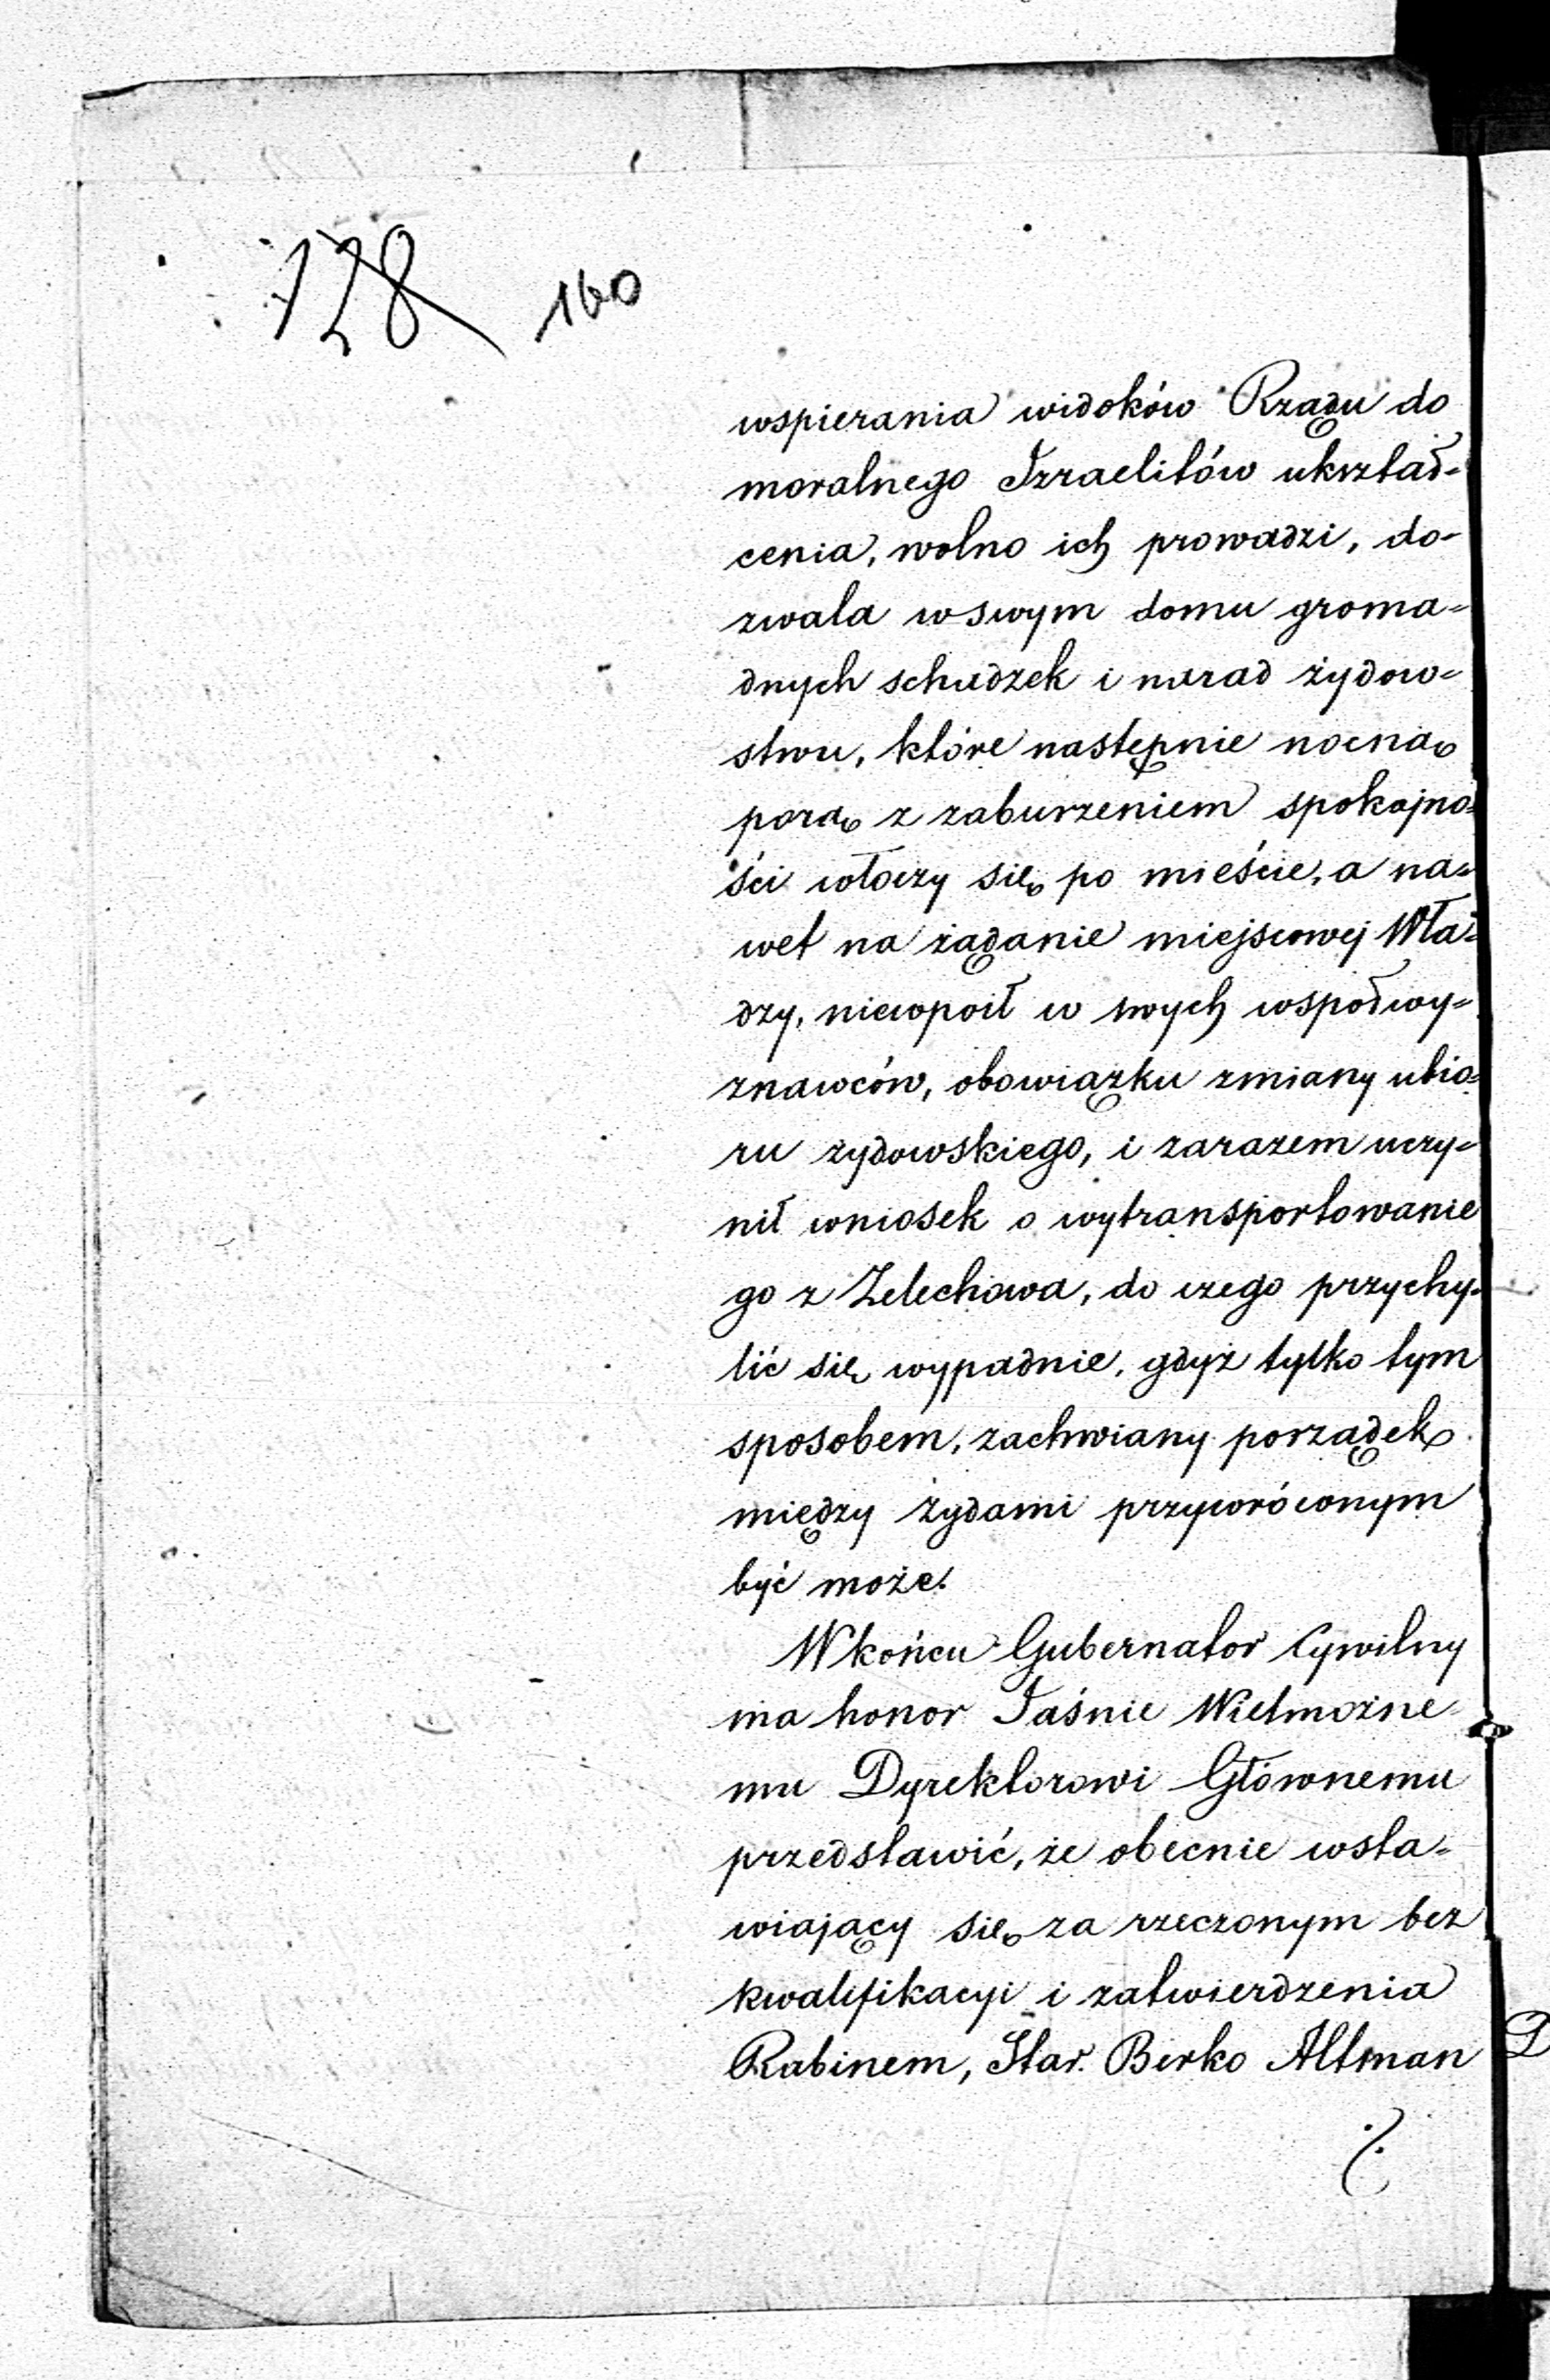 128 160
wspierania widoków Rządu do
moralnego Izraelitów ukształ=
cenia, wolno ich prowadzi, do=
zwala w swym domu groma=
dnych schadzek i narad żydow=
stwu, które następnie nocną
porą z zaburzeniem spokojno=
ści włoczy się po mieście, a na=
wet na żądanie miejscowej Wła=
dzy, niewpoił w swych wspołwy=
znawców, obowiązku zmiany ubio=
ru żydowskiego, i zarazem uczy=
nił wniosek o wytransportowanie
go z Żelechowa, do czego przychy=
lić się wypadnie, gdyż tylko tym
sposobem, zachwiany porządek
między żydami przywróconym
być może.
W końcu Gubernator Cywilny
ma honor Jaśnie Wielmożne
mu Dyrektorowi Głównemu
przedstawić, że obecnie wsta=
wiający się za rzeczonym bez
kwalifikacyi i zatwierdzenia
Rabinem, Star. Berko Altman
./.